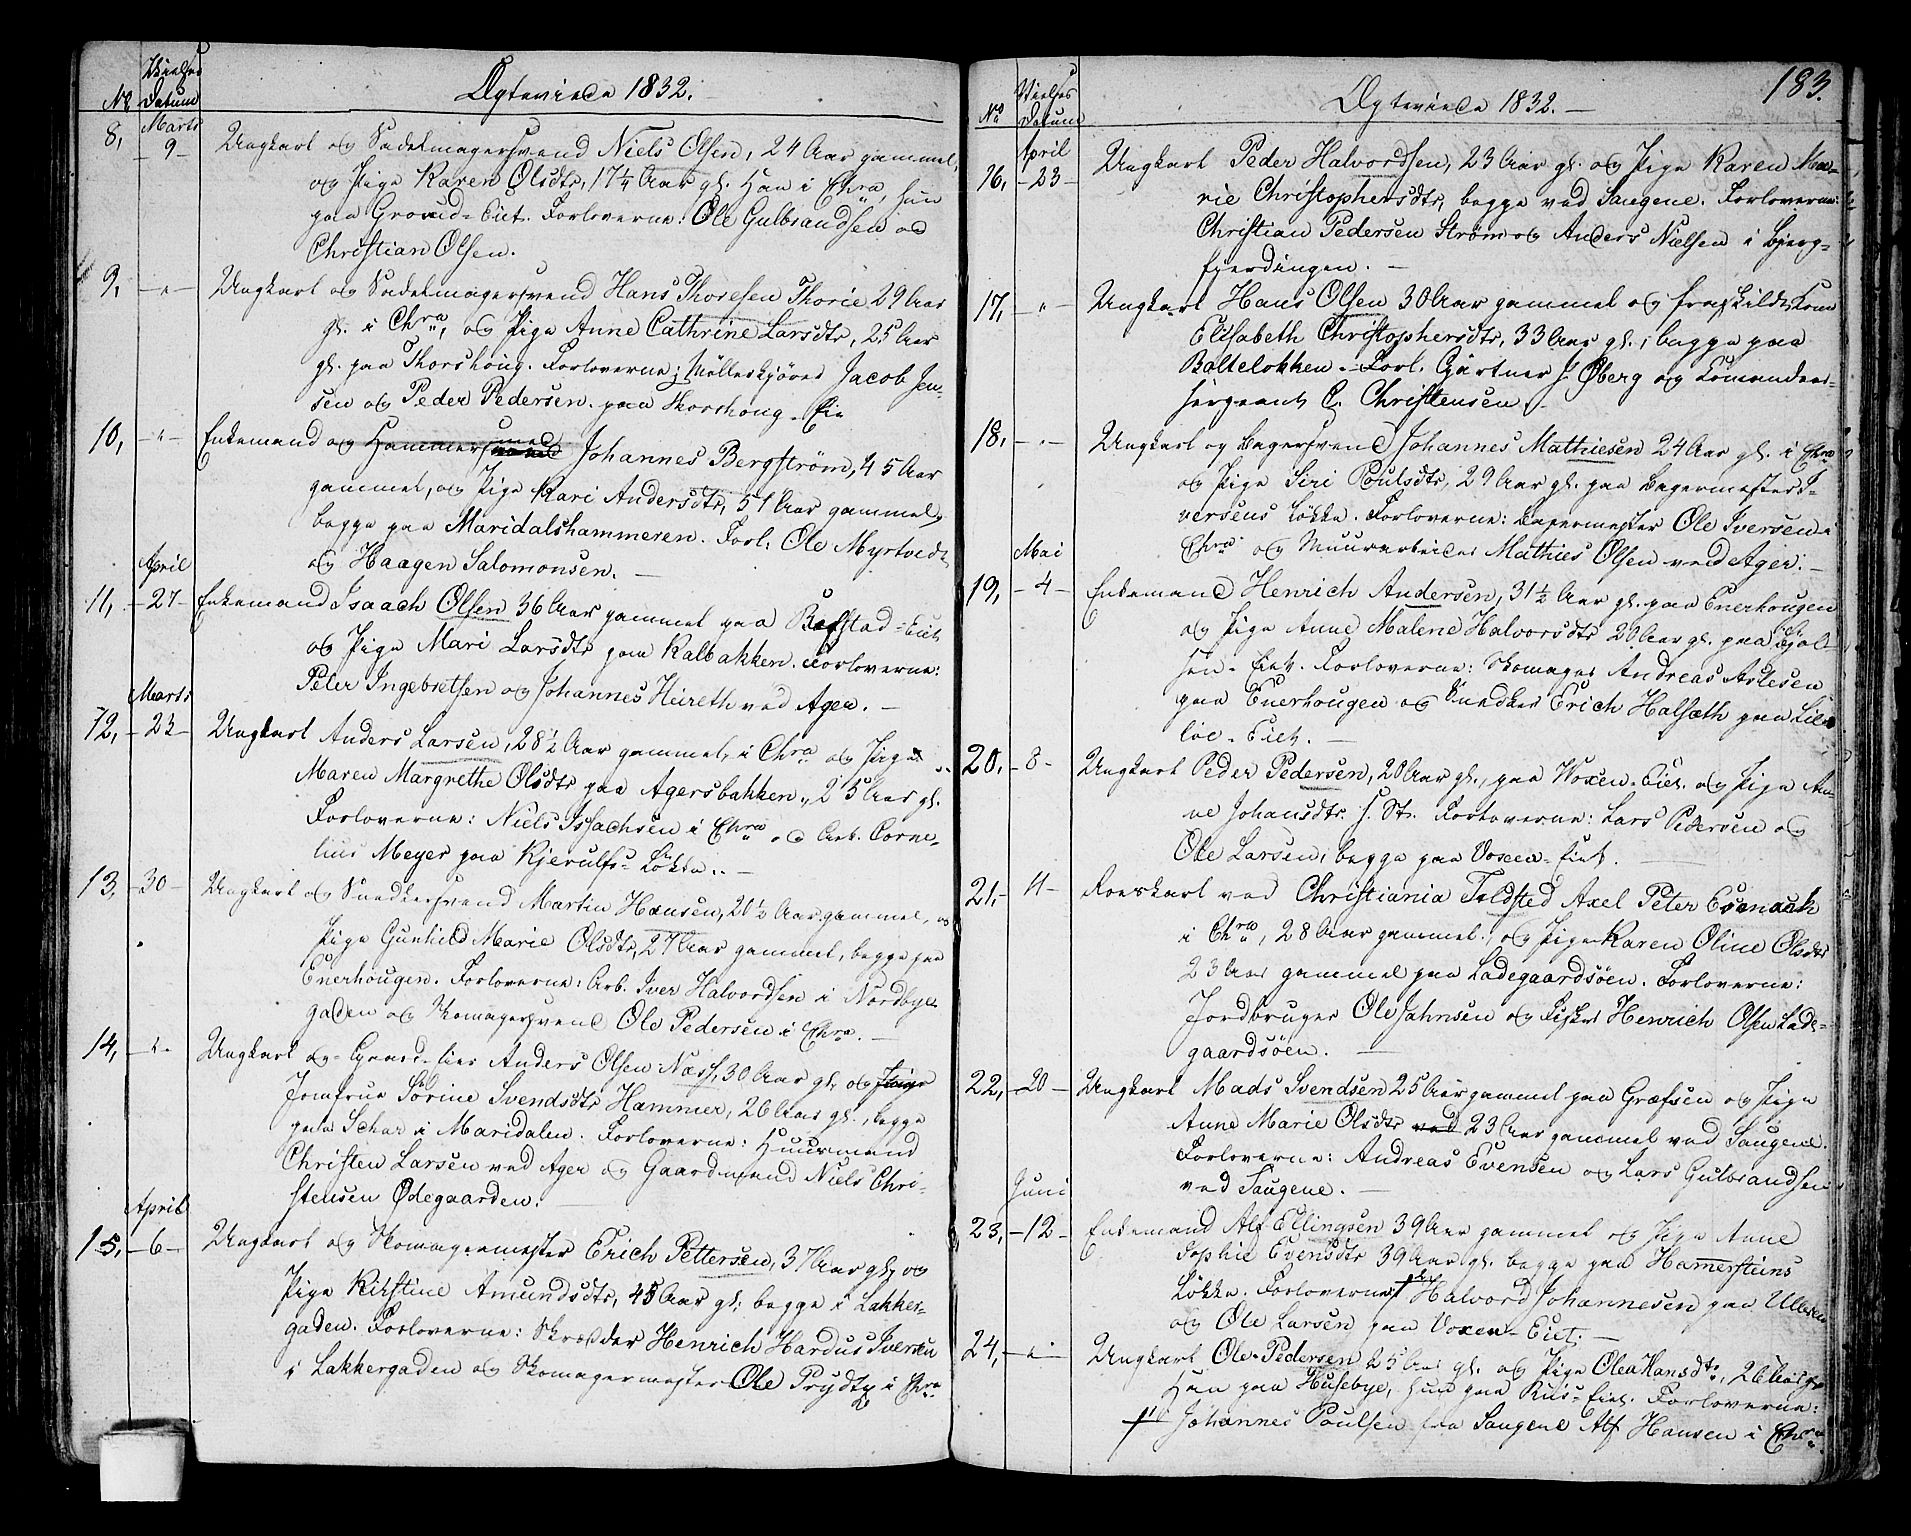 Vielses
No Datum
Egteviede 1832.
Marts
8, -9- Ungkarl og Sadelmagersvend Niels Olsen, 24 Aar gammel,
og Pige Karen Olsdtr, 17¼ Aar gl. Han i Chra, hun
paa Grorud-Eiet. Forloverne: Ole Gulbrandsen og
Christian Olsen.
9, -"- Ungkarl og Sadelmagersvend Hans Thoresen Thorie 29 Aar
gl. i Chra, og Pige Anne Cathrine Larsdtr, 25 Aar
gl. paa Thorshoug. Forloverne: Möllerkjører Jacob Jen-
sen og Peder Pedersen paa Thorshoug-Eie
10, -"- Enkemand og Hammersmed Johannes Bergström, 45 Aar
gammel, og Pige Kari Andersdtr, 51 Aar gammel,
begge paa Maridalshammeren. Forl: Ole Myrtvedt
og Haagen Salomonsen. -
April
11, -27- Enkemand Isaach Olsen 36 Aar gammel paa Refstad-Eiet
og Pige Mari Larsdtr paa Kalbakken. Forloverne:
Peter Ingebretsen og Johannes Heireth ved Ager. -
Marts
12, -23- Ungkarl Anders Larsen, 28½ Aar gammel, i Chra og Pige
Maren Margrethe Olsdtr paa Agersbakken, 25 Aar gl.
Forloverne: Niels Issachsen i Chra og Arb. Corne-
lius Meyer paa Kjerulfs-Løkke. -
13, -30- Ungkarl og Snedkersvend Martin Hansen, 20½ Aar gammel, og
Pige Gunhild Marie Olsdtr, 27 Aar gammel, begge paa
Enerhougen. Forloverne: Arb. Iver Halvordsen i Nordbye-
gaden og Skomagersvend Ole Pedersen i Chra. -
14, -"- Ungkarl og Gaard-eier Anders Olsen Næss, 30 Aar gl. og Pige
Jomfrue Sörine Svendsdtr Hammer, 26 Aar gl., begge
paa Schar i Maridalen. Forloverne: Huusmand
Christen Larsen ved Ager og Gaardmand Niels Chri-
stensen Ødegaarden. -
April
15, -6- Ungkarl og Skomagermester Erich Pettersen, 37 Aar gl, og
Pige Kirstine Amundsdtr, 45 Aar gl. begge i Lakker-
gaden. Forloverne: Skræder Henrich Hardus Iversen
i Lakkergaden og Skomagermester Ole Prydtz i Chra
183.
Vielses
No Datum
Egteviede 1832. -
April
16, -23- Ungkarl Peder Halvordsen, 23 Aar gl. og Pige Karen Ma-
rie Christophersdtr, begge ved Saugene. Forloverne:
Christian Pedersen Strøm og Anders Nielsen i Bjerg-
fjerdingen. -
17, -"- Ungkarl Hans Olsen 30 Aar gammel og fraskildt Kone
Elisabeth Christophersdtr, 33 Aar gl., begge paa
Baltelokken. Forl. Gartner J. Øberg og Comandeer-
sergeant C. Christensen. -
18, -"- Ungkarl og Bagersvend Johannes Mathiesen 24 Aar gl. i Chra
og Pige Siri Poulsdtr, 29 Aar gl. paa Bagermester I-
versens Løkke. Forloverne: Bagermester Ole Iversen i
Chra og Muurarbeider Mathies Olsen ved Ager. -
Mai
19, -4- Enkemand Henrich Andersen, 31½ Aar gl. paa Enerhougen
og Pige Anne Malene Halvorsdtr 20 Aar gl. paa Kjöl-
sen-Eiet. Forloverne: Skomager Andreas Aslesen
paa Enerhougen og Snedker Erich Halsæth paa Lille
loe-Eiet. -
20, -8- Ungkarl Peder Pedersen, 20 Aar gl., paa Voxen-Eiet. og Pige An-
ne Johansdtr s. St. Forloverne: Lars Pedersen og
Ole Larsen, begge paa Voxen-Eiet. -
21, -11- Roerskarl ved Christiania Toldsted Axel Peter Evenack
i Chra, 28 Aar gammel., og Pige Karen Oline Olsdtr
23 Aar gammel paa Ladegaardsöen. Forloverne:
Jordbruger Ole Jahnsen og Fisker Henrich Olsen Lade-
gaardsöen. -
22, -20- Ungkarl Mads Svendsen 25 Aar gammel paa Græfsen og Pige
Anne Marie Olsdtr ved 23 Aar gammel ved Saugene.
Forloverne: Andreas Evensen og Lars Gulbrandsen
ved Saugene. -
Juni
23, -12- Enkemand Alf Ellingsen 39 Aar gammel og Pige Anne
Sophie Evensdtr 39 Aar gl. begge paa Hamersteins
Løkke. Forloverne: Halvord Johannesen paa Ulleven
og Ole Larsen paa Voxen-Eiet. -
24, -"- Ungkarl Ole Pedersen 25 Aar gl. og Pige Olea Hansdtr, 26 Aar gl
Han paa Husebye, hun paa Riis-Eiet. Forloverne:
Johannes Poulsen fra Saugene Alf Hansen i Chra.